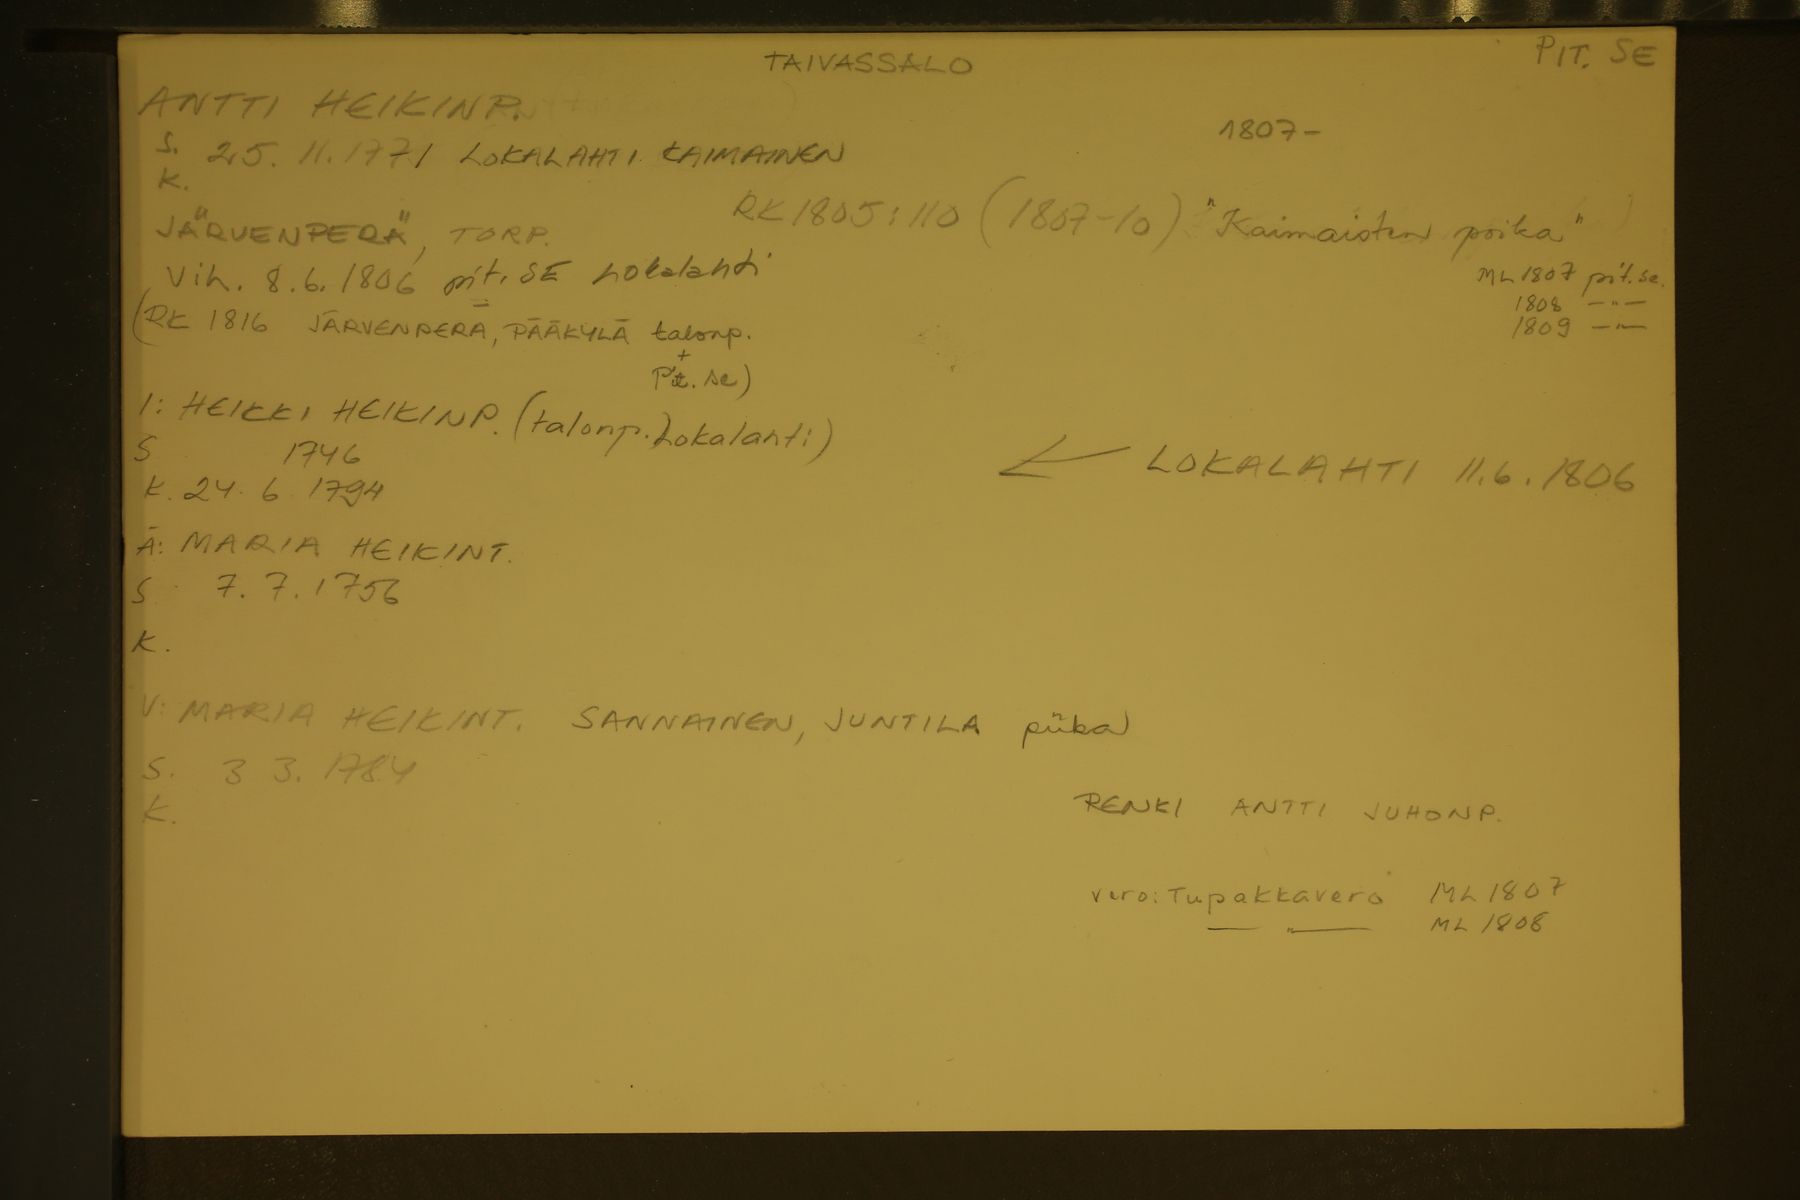 TAIVASSALO
PIT. SE
ANTTI HEIKINP.
1807-
S. 25. 11. 1771 LOKALAHTI KAIMAINEN
K.
RK 1805:110 (1807-10) "Kaimaisten poika"
JÄRVENPERÄ, TORP.
Vih. 8.6. 1806 pit. SE Lokalahti
ML 1807 pit.se.
1808 — " —
1809 — " —
(RK 1816 JÄRVENPERÄ, PÄÄKYLÄ talonp.
+
Pit. se)
I: HEIKKI HEIKINP. (talonp. Lokalahti)
S 1746
← LOKALAHTI 11.6.1806
K. 24. 6 1794
Ä: MARIA HEIKINT.
S 7. 7. 1756
K.
V: MARIA HEIKINT. SANNAINEN, JUNTILA piika
S. 3 3. 1784
K.
RENKI ANTTI JUHONP.
vero: Tupakkavero ML 1807
— " — ML 1808